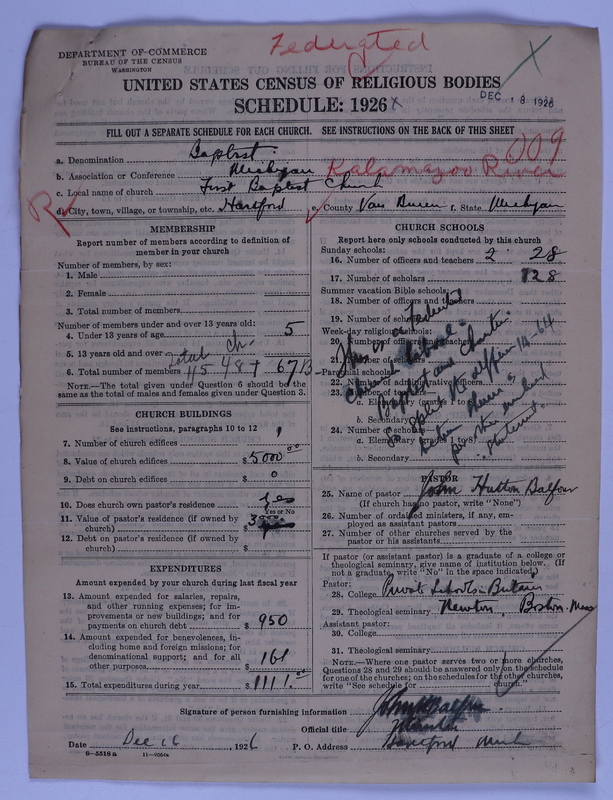 Federated
DEPARTMENT OF COMMERCE
BUREAU OF THE CENSUS
WASHINGTON
UNITED STATES CENSUS OF RELIGIOUS BODIES
SCHEDULE: 1926
DEC 18 1926
FILL OUT A SEPARATE SCHEDULE FOR EACH CHURCH. SEE INSTRUCTIONS ON THE BACK OF THIS SHEET
009
a. Denomination Baptist.
b. Association or Conference Michigan Kalamazoo River
c. Local name of church First Baptist Church
R
d. City, town, village, or township, etc. Hartford e. County Van Buren f. State Michigan
MEMBERSHIP
Report number of members according to definition of
member in your church
Number of members, by sex:
1. Male
2. Female
3. Total number of members
Number of members under and over 13 years old:
4. Under 13 years of age 5
5. 13 years old and over
6. Total number of members
NOTE.—The total given under Question 6 should be the
same as the total of males and females given under Question 3.
CHURCH BUILDINGS
See instructions, paragraphs 10 to 12
7. Number of church edifices 1
8. Value of church edifices $5000.00
9. Debt on church edifices $ 0
10. Does church own pastor's residence yes
Yes or No
11. Value of pastor's residence (if owned by
church) $
12. Debt on pastor's residence (if owned by
church) $
EXPENDITURES
Amount expended by your church during last fiscal year
13. Amount expended for salaries, repairs,
and other running expenses; for im-
provements or new buildings; and for
payments on church debt $ 950
14. Amount expended for benevolences, in-
cluding home and foreign missions; for
denominational support; and for all
other purposes $ 161
15. Total expenditures during year $ 1111.00
CHURCH SCHOOLS
Report here only schools conducted by this church
Sunday schools:
16. Number of officers and teachers 2 28
17. Number of scholars 128
Summer vacation Bible schools:
18. Number of officers and teachers
19. Number of scholars
Week-day religious schools:
20. Number of officers and teachers
21. Number of scholars
Parochial schools:
22. Number of administrative officers
23. Number of teachers:
a. Elementary (grades 1 to 8)
b. Secondary
24. Number of scholars:
a. Elementary (grades 1 to 8)
b. Secondary
This is a Federated
Church School.
Baptist and
PASTOR
25. Name of pastor John Hutton Balfour
(If church has no pastor, write "None")
26. Number of ordained ministers, if any, em-
ployed as assistant pastors
27. Number of other churches served by the
pastor or his assistants
If pastor (or assistant pastor) is a graduate of a college or
theological seminary, give name of institution below. (If
not a graduate, write "No" in the space indicated)
Pastor:
28. College Private Schools in Britain
29. Theological seminary Newton, Boston, Mass
Assistant pastor:
30. College
31. Theological seminary
NOTE.—Where one pastor serves two or more churches,
Questions 28 and 29 should be answered only on the schedule
for one of the churches; on the schedules for the other churches,
write "See schedule for church."
Signature of person furnishing information John H Balfour
Official title
Date Dec 16, 1926 P. O. Address Hartford Mich
8—5518 a 11—9054a